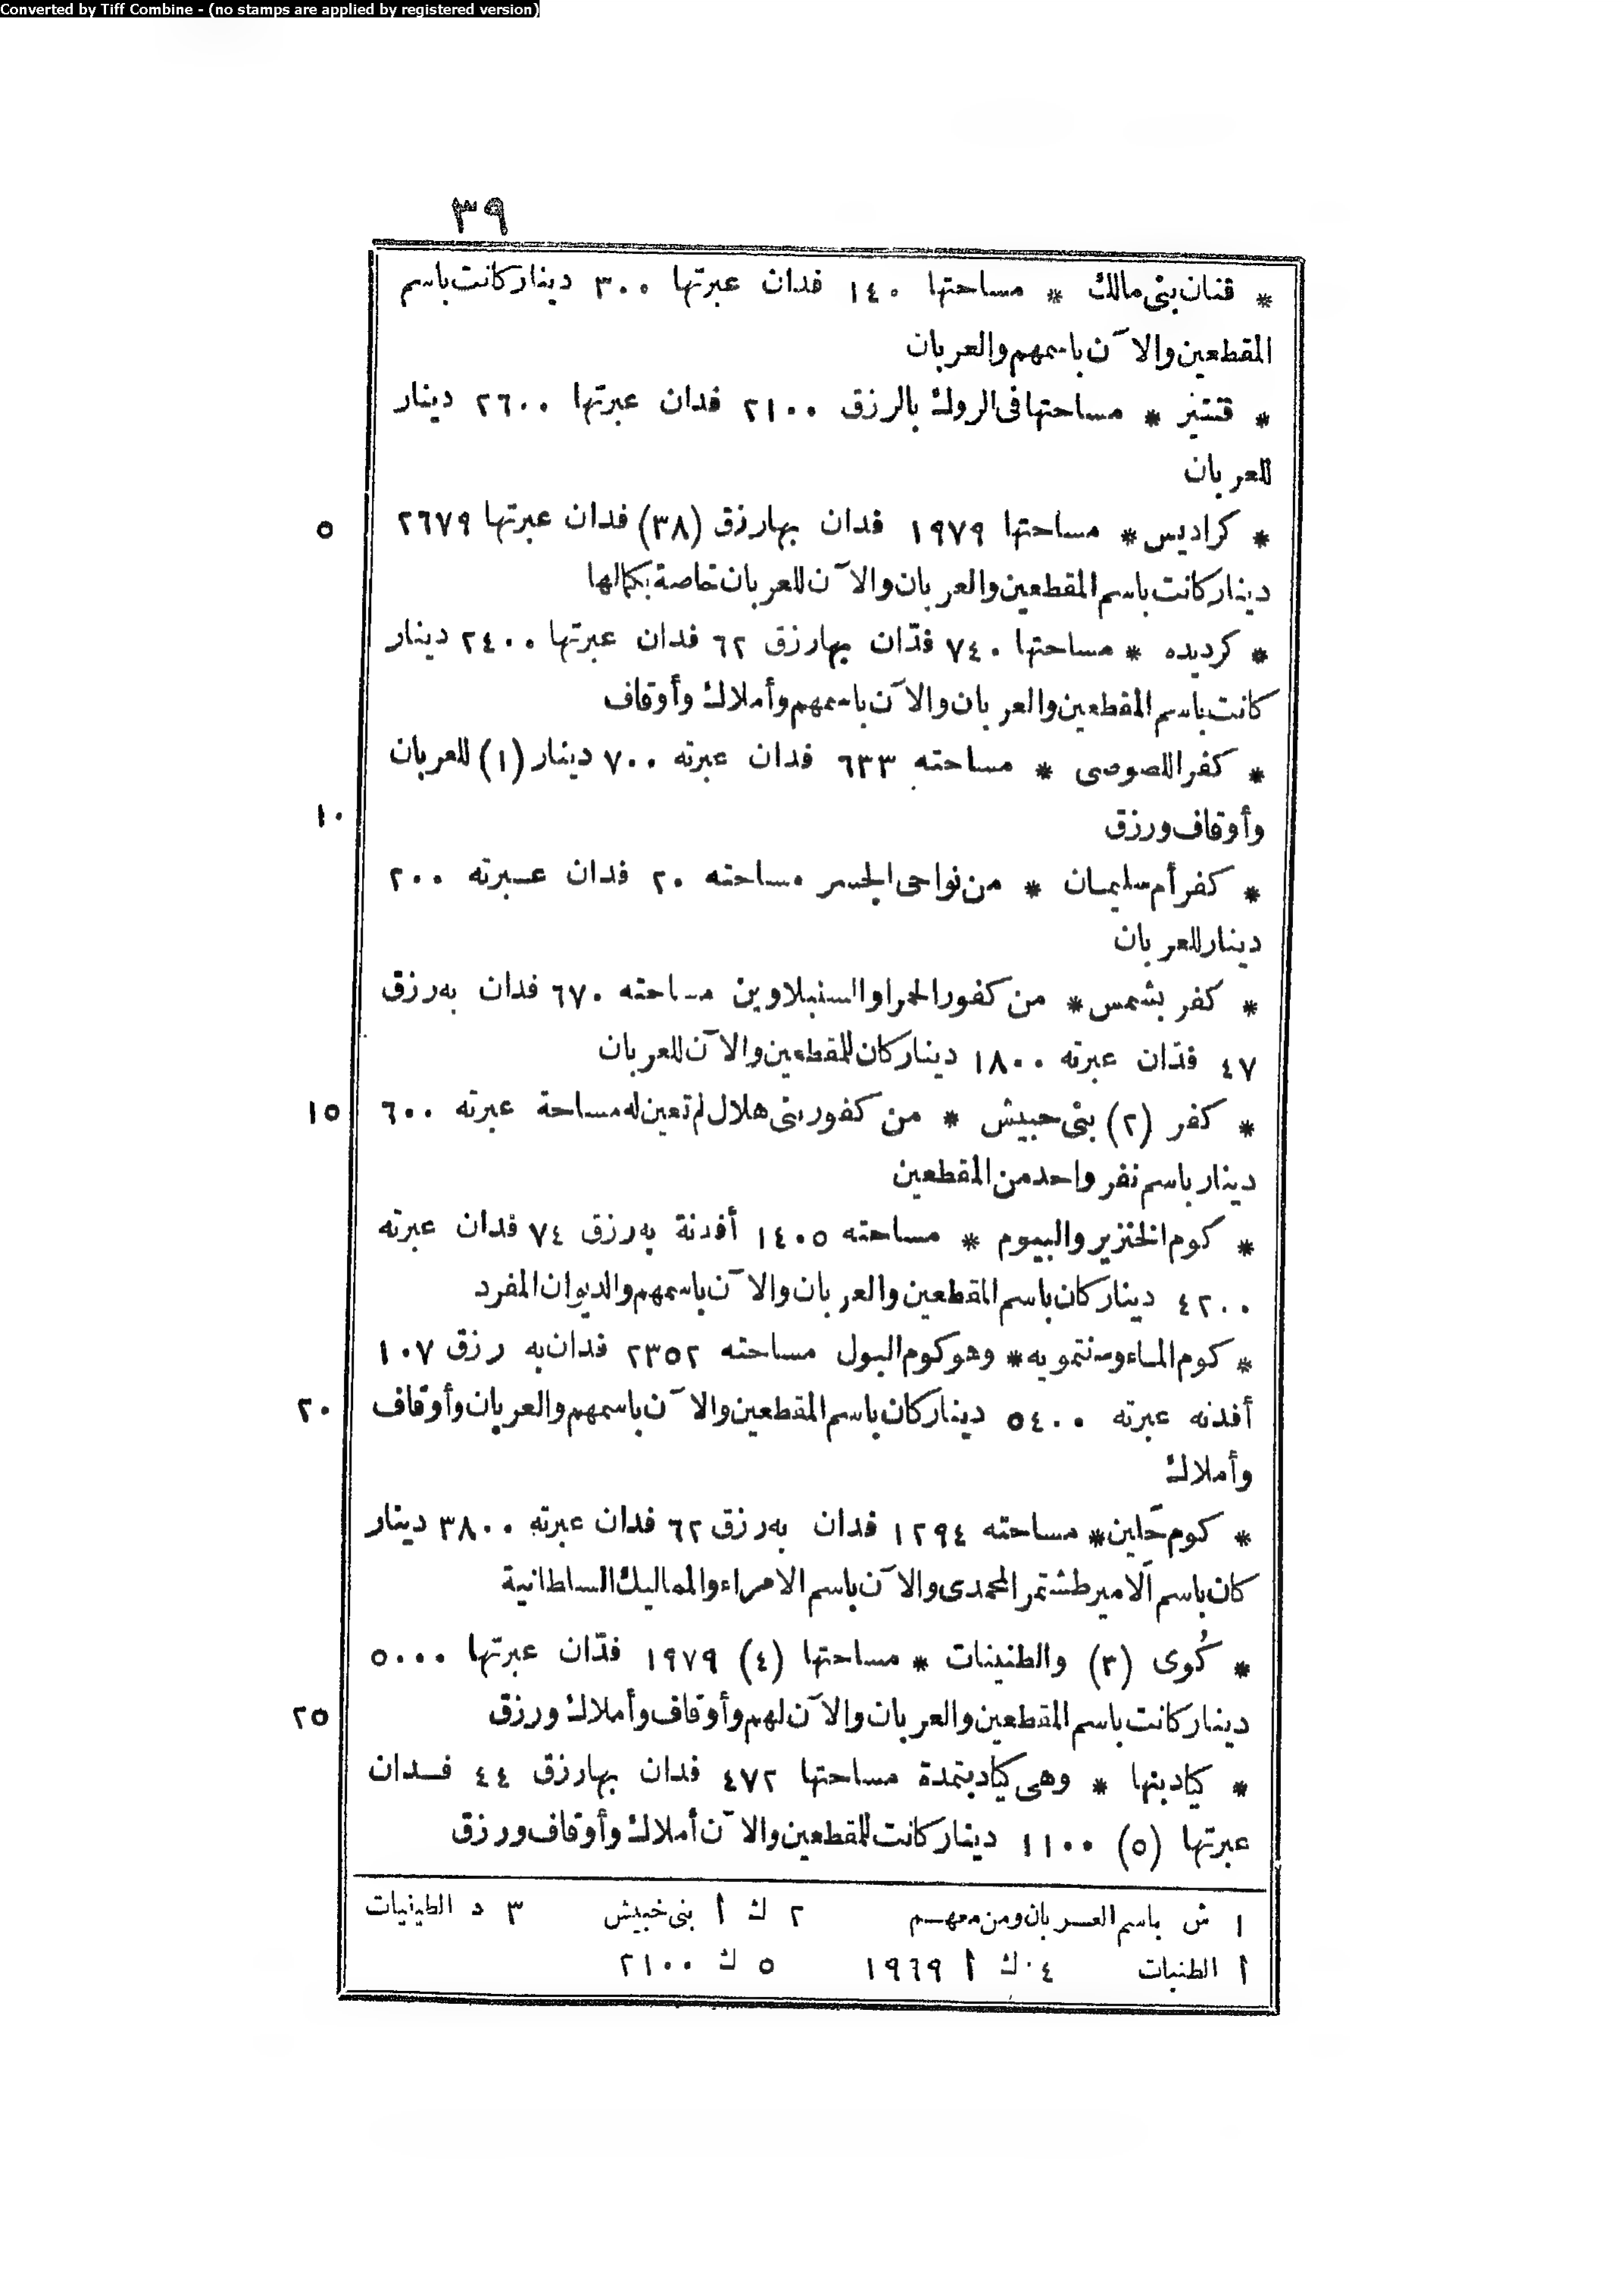 Converted by Tiff Combine - (no stamps are applied by registered version)
٣٩
* قنان بنى مالك * مساحتها ١٤٠ فدان عبرتها ٣٠٠ دينار كانت باسم
المقطعين والآن باسمهم والعربان
* قنتير * مساحتها فى الروك بالرزق ٢١٠٠ فدان عبرتها ٢٦٠٠ دينار
للعربان
٥ * كراديس * مساحتها ١٩٧٩ فدان بها رزق (٣٨) فدان عبرتها ٢٦٧٩
دينار كانت باسم المقطعين والعربان والآن للعربان خاصة بكمالها
* كرديده * مساحتها ٧٤٠ فدّان بها رزق ٦٢ فدان عبرتها ٢٤٠٠ دينار
كانت باسم المقطعين والعربان والآن باسمهم وأملاك وأوقاف
* كفر اللصوصى * مساحته ٦٣٣ فدان عبرته ٧٠٠ دينار (١) للعربان
١٠ وأوقاف ورزق
* كفر أم سليمان * من نواحى الجسر مساحته ٢٠ فدان عبرته ٢٠٠
دينار للعربان
* كفر بشمس * من كفور الحمرا والسنبلاوين مساحته ٦٧٠ فدان به رزق
٤٧ فدّان عبرته ١٨٠٠ دينار كان للمقطعين والآن للعربان
١٥ * كفر (٢) بنى حبيش * من كفور بنى هلال لم تعين له مساحة عبرته ٦٠٠
دينار باسم نفر واحد من المقطعين
* كوم الخنزير والبيوم * مساحته ١٤٠٥ أفدنة به رزق ٧٤ فدان عبرته
٤٢٠٠ دينار كان باسم المقطعين والعربان والآن باسمهم والديوان المفرد
* كوم الماء ومنتمويه * وهو كوم البول مساحته ٢٣٥٢ فدان به رزق ١٠٧
٢٠ أفدنه عبرته ٥٤٠٠ دينار كان باسم المقطعين والآن باسمهم والعربان وأوقاف
وأملاك
* كوم حَلين * مساحته ١٢٩٤ فدان به رزق ٦٢ فدان عبرته ٣٨٠٠ دينار
كان باسم الامير طشتمر المحمدى والآن باسم الامراء والمماليك السلطانية
* كُوى (٣) والطنينات * مساحتها (٤) ١٩٧٩ فدّان عبرتها ٥٠٠٠
٢٥ دينار كانت باسم المقطعين والعربان والآن لهم وأوقاف وأملاك ورزق
* كياد بنها * وهى كياد بتمدة مساحتها ٤٧٢ فدان بها رزق ٤٤ فدان
عبرتها (٥) ١١٠٠ دينار كانت للمقطعين والآن أملاك وأوقاف ورزق
١ ش باسم العربان ومن معهم ٢ ك أ بنى خبيش ٣ د الطينيات
أ الطنبات ٤ ك أ ١٩٦٩ ٥ ك ٢١٠٠